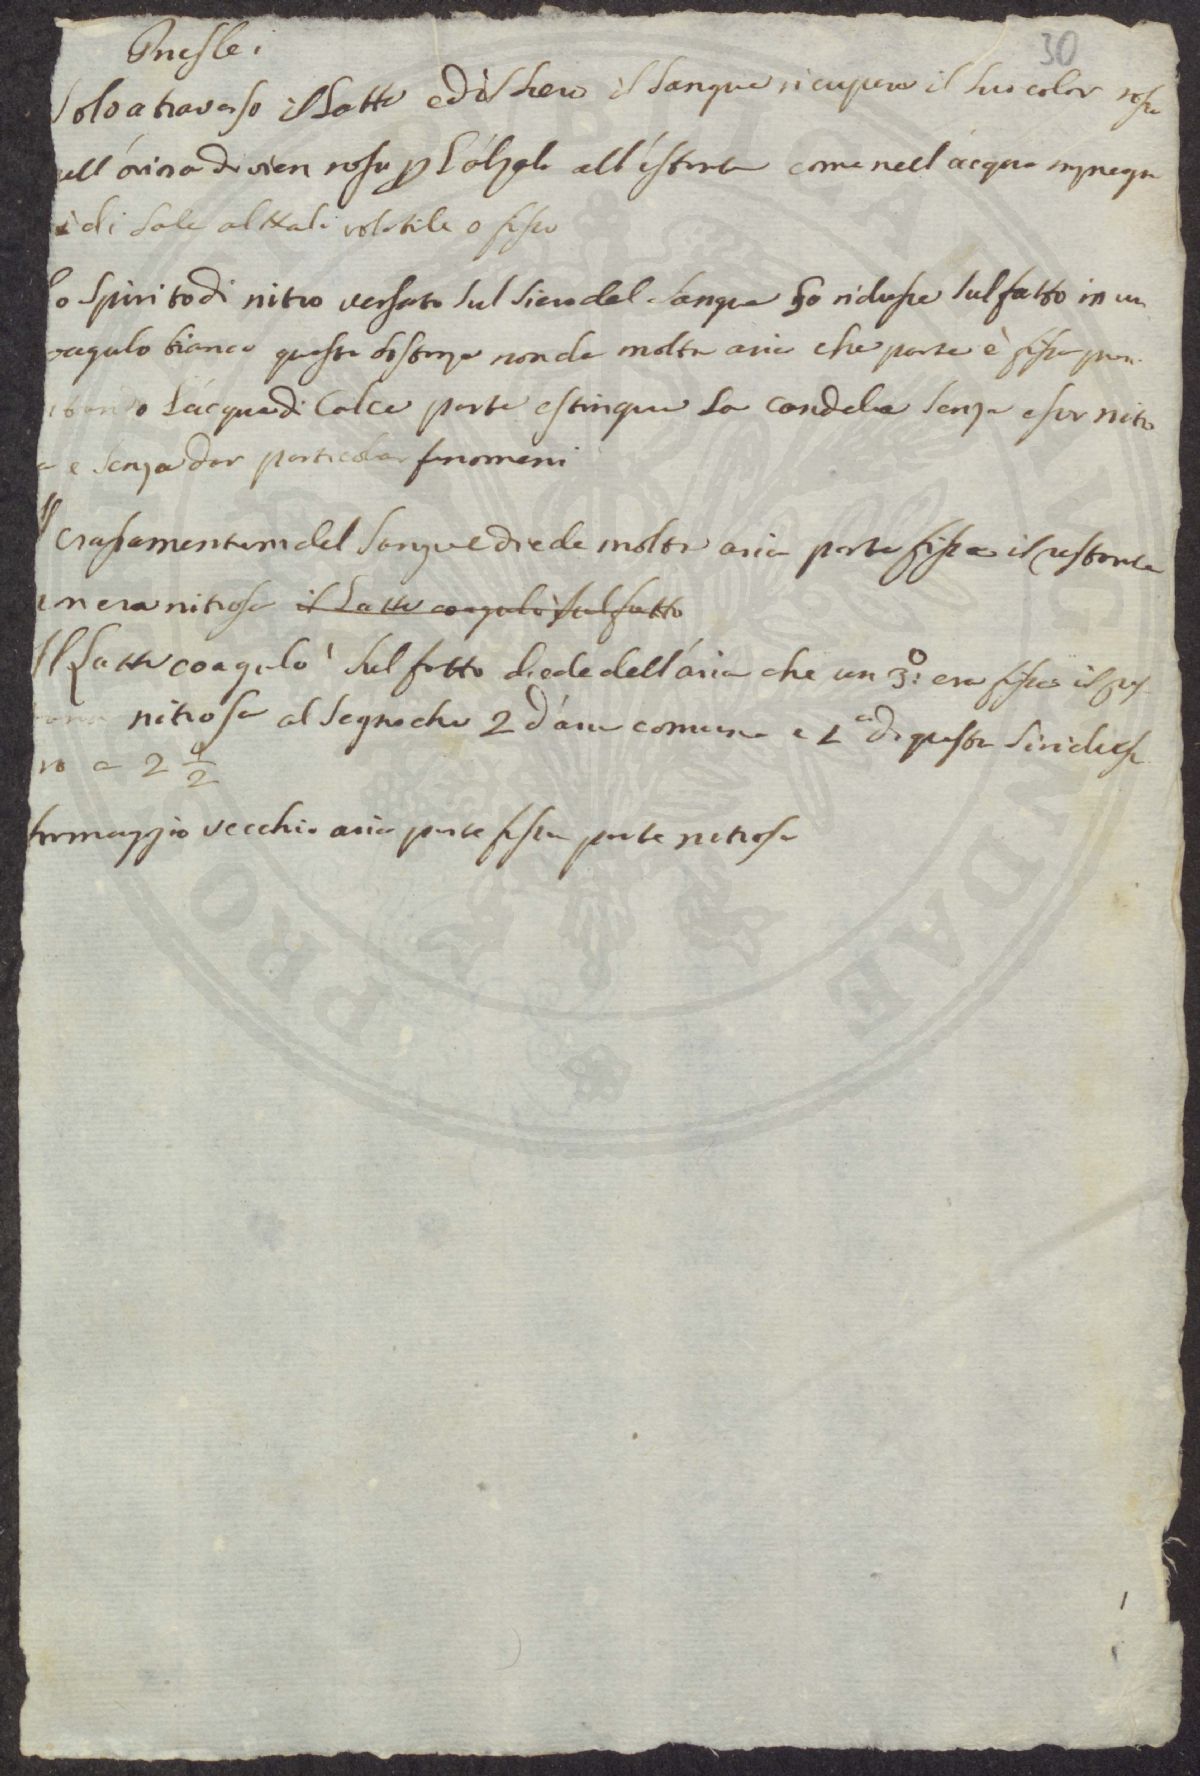 Presle i
30
Solo atraverso il Latte ed il siero il Sangue ricupera il suo color rosso
nell' orina divien rosso all' esterno come nell' acqua impregn
di Sale alkali volatile o fisso
Lo Spirito di nitro versato sul siero del Sangue lo ridusse sul fatto in un
coagulo bianco questa sostanza non da molta aria che parte è fissa
L'acqua di Calce parte estingue La candela senza esser nitro
a e senza dar particolar fenomeni
Il crassamentum del Sangue diede molta aria parte fissa il restante
n era nitrosa il Latte coagulò sul fatto
Il Latte coagulò sul fatto diede dell'aria che un 3.º era fissa il res
nitrosa al segno che 2 d'aria comune e 1 di questa si ridusse
ro a 2 1/2
formaggio vecchio aria parte fissa parte nitrosa